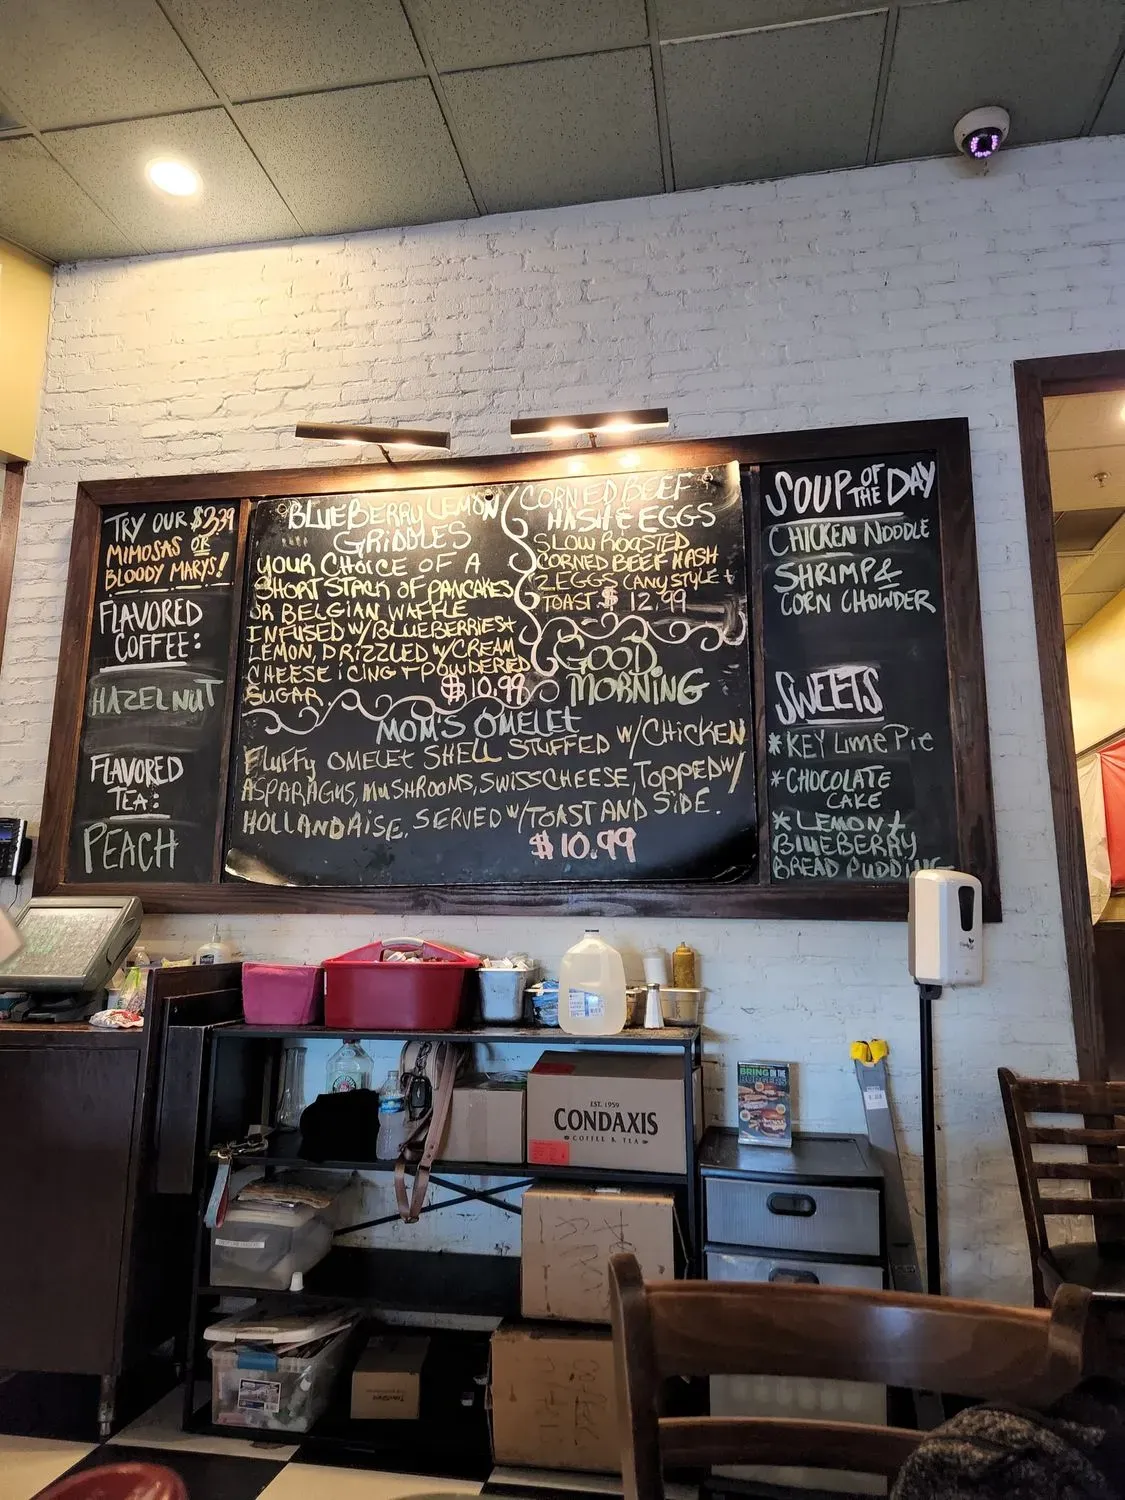 TRY OUR $3.99
MIMOSAS OR
BLOODY MARYS!
FLAVORED
COFFEE:
HAZELNUT
FLAVORED
TEA:
PEACH
BLUEBERRY LEMON
GRIDDLES
YOUR CHOICE OF A
SHORT STACK OF PANCAKES
OR BELGIAN WAFFLE
INFUSED W/BLUEBERRIES+
LEMON, DRIZZLED W/CREAM
CHEESE ICING + POWDERED
SUGAR. $10.99
CORNED BEEF
HASH & EGGS
SLOW ROASTED
CORNED BEEF HASH
2 EGGS (ANY STYLE +
TOAST $ 12.99
GOOD
MORNING
MOM'S OMELET
FLUFFY OMELET SHELL STUFFED W/CHICKEN
ASPARAGUS, MUSHROOMS, SWISS CHEESE, TOPPED W/
HOLLANDAISE, SERVED W/TOAST AND SIDE.
$10.99
SOUP OF THE DAY
CHICKEN NOODLE
SHRIMP &
CORN CHOWDER
SWEETS
*KEY LIME PIE
*CHOCOLATE
CAKE
*LEMON +
BLUEBERRY
BREAD PUDDING
EST. 1959
CONDAXIS
COFFEE & TEA
BRING ON THE
BURGERS